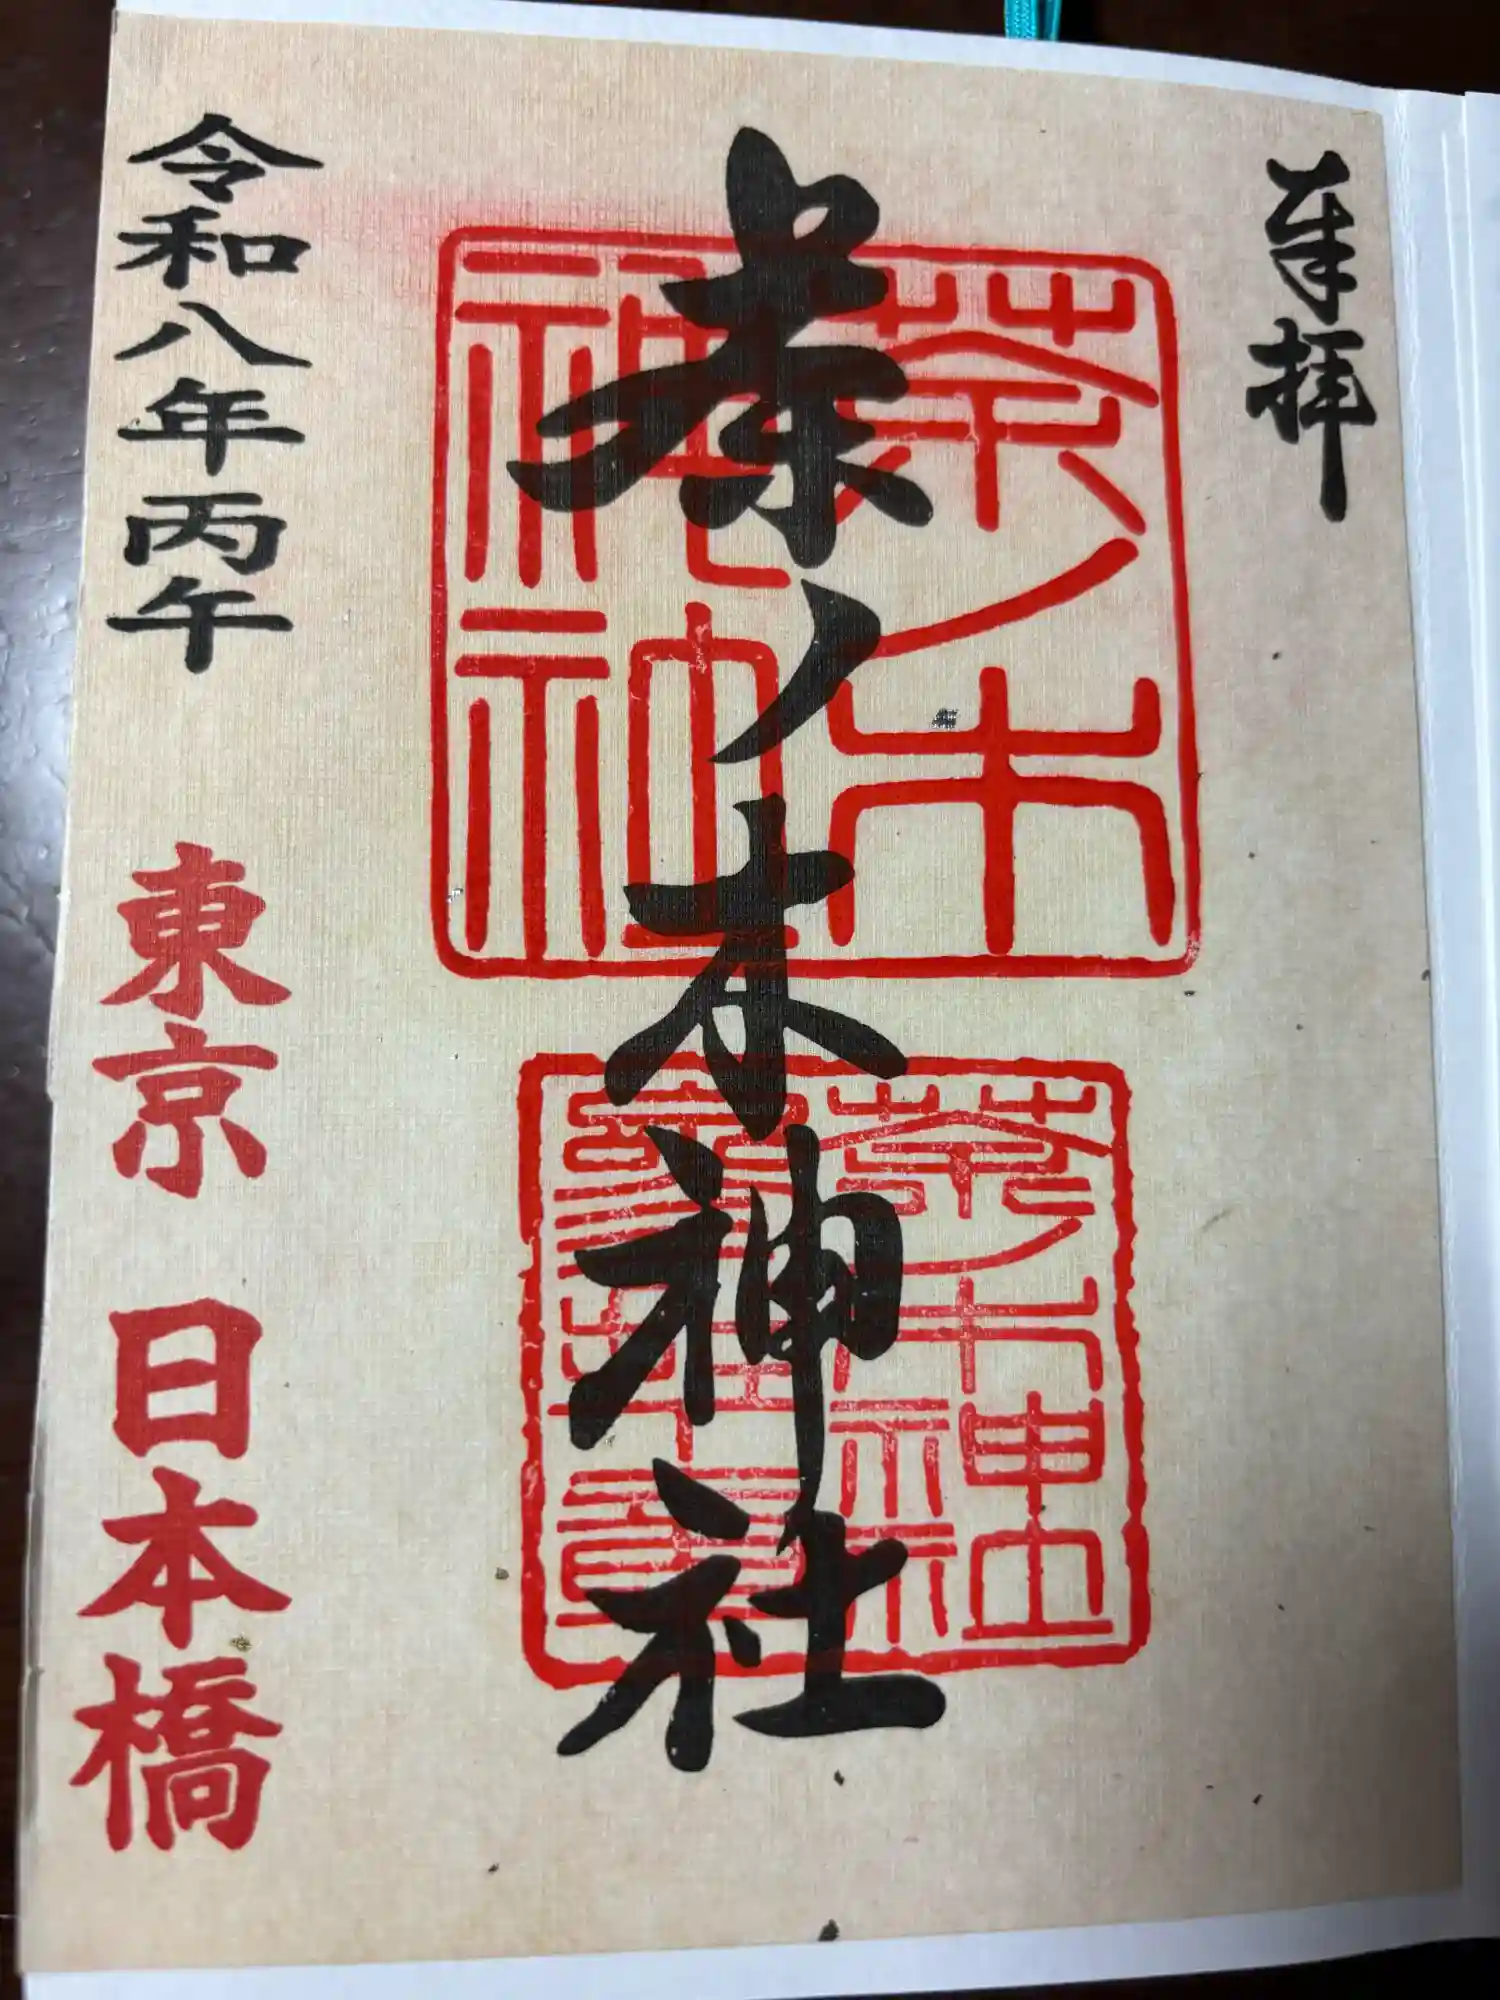 奉拝
茶ノ木神社
茶ノ木
神社
茶ノ木神社
令和八年丙午 東京 日本橋